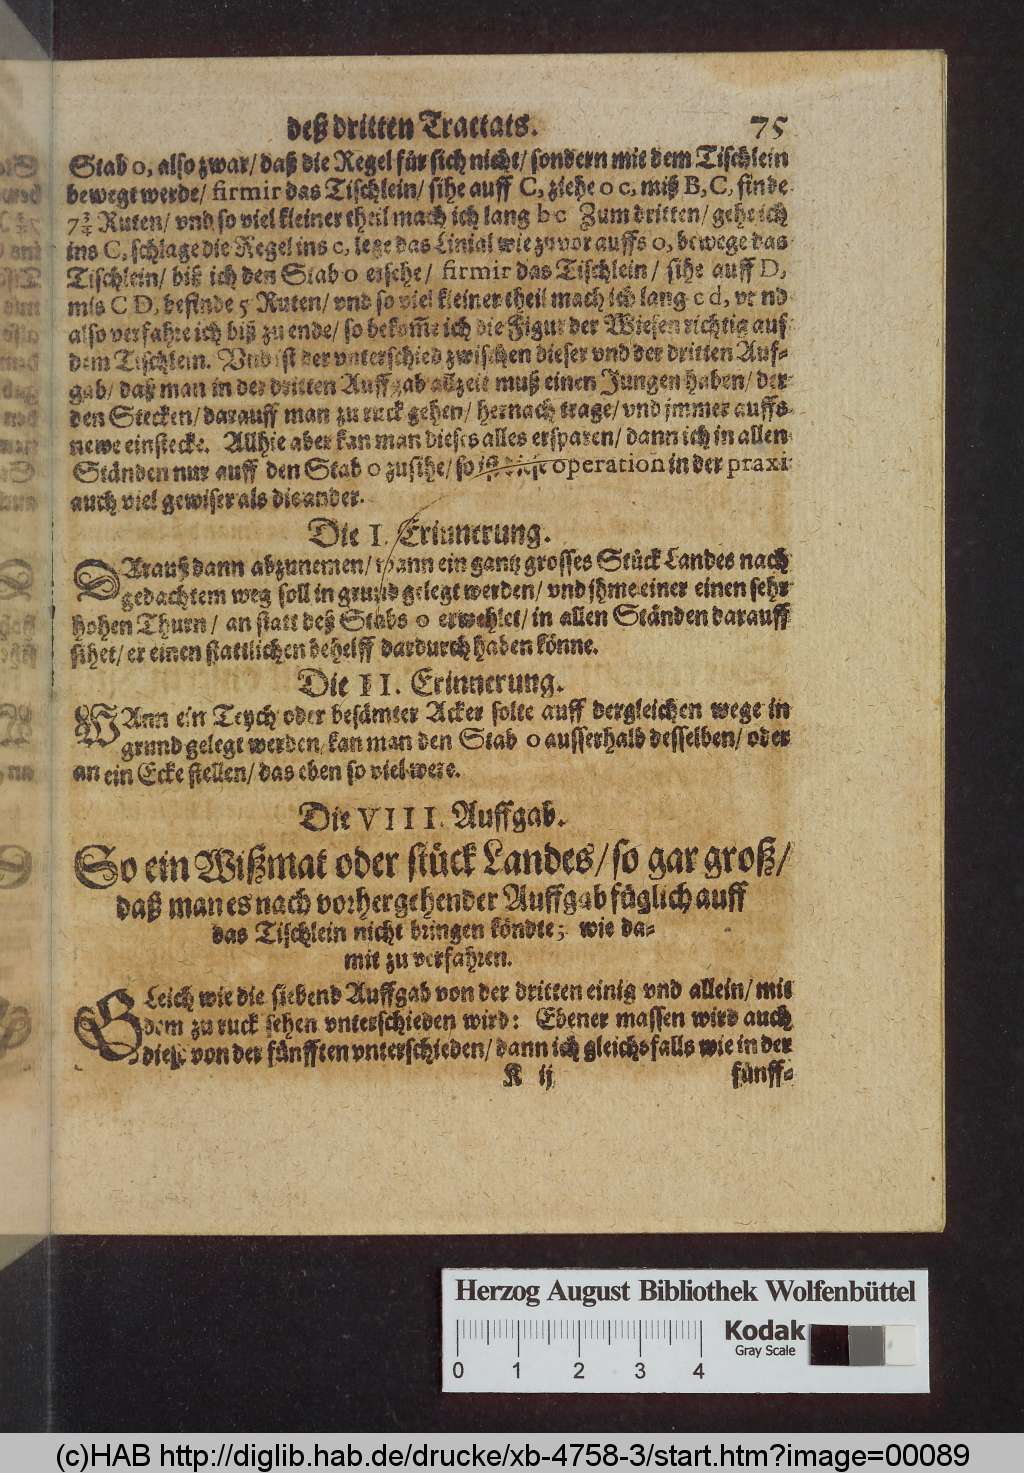 deß dritten Tractats. 75
Stab o, also zwar/ daß die Regel für sich nicht/ sondern mit dem Tischlein
bewegt werde/ firmir das Tischlein/ sihe auff C, ziehe o c, miß B, C, finde
7¾ Ruten/ vnd so viel kleiner theil mach ich lang b c Zum dritten/ gehe ich
ins C, schlage die Regel ins c, lege das Linial wie zuvor auffs o, bewege das
Tischlein/ biß ich den Stab o ersehe/ firmir das Tischlein/ sihe auff D,
mis C D, befinde 5 Ruten/ vnd so viel kleiner theil mach ich lang c d, vnd
also verfahre ich biß zu ende/ so bekom̃e ich die Figur der Wiesen richtig auf
dem Tischlein. Vnd ist der vnterschied zwischen dieser vnd der dritten Auf-
gab/ daß man in der dritten Auffgab allzeit muß einen Jungen haben/ der
den Stecken/ darauff man zu ruck gehen/ hernach trage/ vnd jmmer auffs
newe einstecke. Allhie aber kan man dieses alles ersparen/ dann ich in allen
Ständen nur auff den Stab o zusihe/ so ist diese operation in der praxi
auch viel gewiser als die ander.
Die I. Erinnerung.
DArauß dann abzunemen/ wann ein gantz grosses Stück Landes nach
gedachtem weg soll in grund gelegt werden/ vnd jhme einer einen sehr
hohen Thurn/ an statt deß Stabs o erwehlet/ in allen Ständen darauff
sihet/ er einen stattlichen behelff dardurch haben könne.
Die II. Erinnerung.
WAnn ein Teych oder besämter Acker solte auff dergleichen wege in
grund gelegt werden/ kan man den Stab o ausserhalb desselben/ oder
an ein Ecke stellen/ das eben so viel were.
Die VIII. Auffgab.
So ein Wißmat oder stück Landes/ so gar groß/
daß man es nach vorhergehender Auffgab füglich auff
das Tischlein nicht bringen köndte; wie da-
mit zu verfahren.
GLeich wie die siebend Auffgab von der dritten einig vnd allein/ mit
dem zu ruck sehen vnterschieden wird: Ebener massen wird auch
diese von der fünfften vnterschieden/ dann ich gleichsfalls wie in der
K ij fünff-
Herzog August Bibliothek Wolfenbüttel
Kodak
Gray Scale
0 1 2 3 4
(c)HAB http://diglib.hab.de/drucke/xb-4758-3/start.htm?image=00089